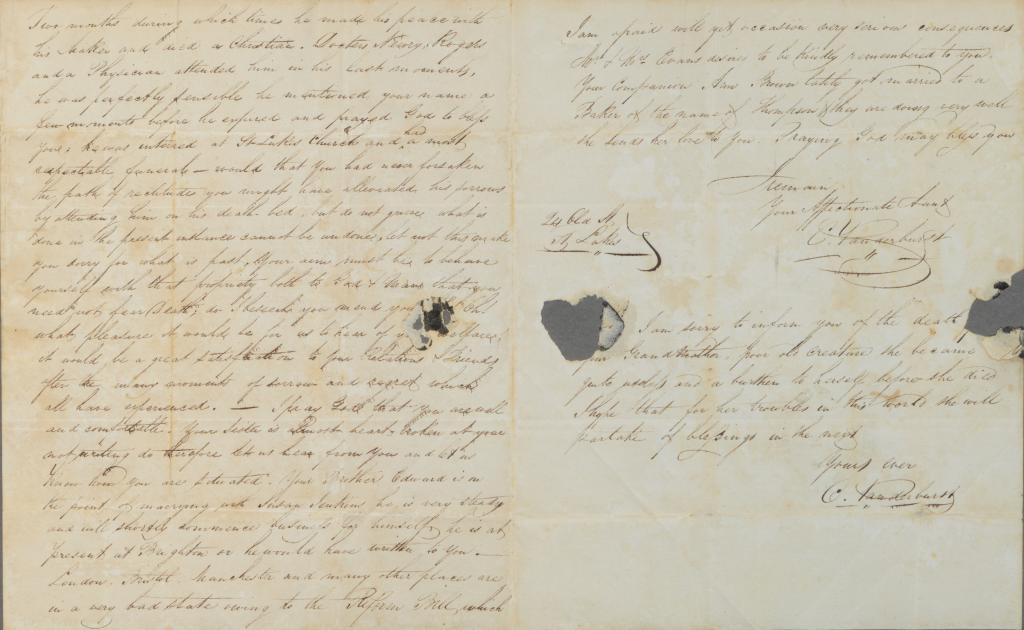 Two months during which times he made his peace with
his Maker and died a Christian. Doctors Henry, Rogers
and a Physician attended him in his last moments,
he was perfectly sensible he mentioned your name a
few moments before he expired and prayed God to bless
you; he was interred at St Lukes Church and had a most
respectable funeral — would that you had never forsaken
the path of rectitude you might have alleviated his sorrows
by attending him on his death-bed, but do not grieve what is
done in the present instance cannot be undone, let not this make
you sorry for what is past, your aim must be to behave
yourself with that propriety both to God & Man that you
need not fear Death; do I beseech you mend your
what pleasure it would be for us to hear of your welfare,
it would be a great satisfaction to your Relations & Friends
after the many moments of sorrow and regret which
all have experienced. — I pray God that you are well
and comfortable. Your Sister is almost heart-broken at your
not writing do therefore let us hear from you and let us
know how you are situated. Your Brother Edward is on
the point of marrying with Susan Jenkins he is very steady
and will shortly commence business for himself, he is at
present at Brighton or he would have written to you. —
London. Bristol. Manchester and many other places are
in a very bad state owing to the Reform Bill, which
I am afraid will yet occasion very serious consequences
Mr & Mrs Evans desires to be kindly remembered to you.
Your companion Ann Brown lately got married to a
Baker of the name of Thompson & they are doing very well
she sends her love to you. Praying God may bless you
I remain
Your Affectionate Aunt
C. Vanderhurst
24 Old St
St Lukes
I am sorry to inform you of the death
your Grandmother. poor old creature she became
quite useless and a burthen to herself before she died
I hope that for her troubles in this World she will
partake of blessings in the next
Yours ever
C. Vanderhurst